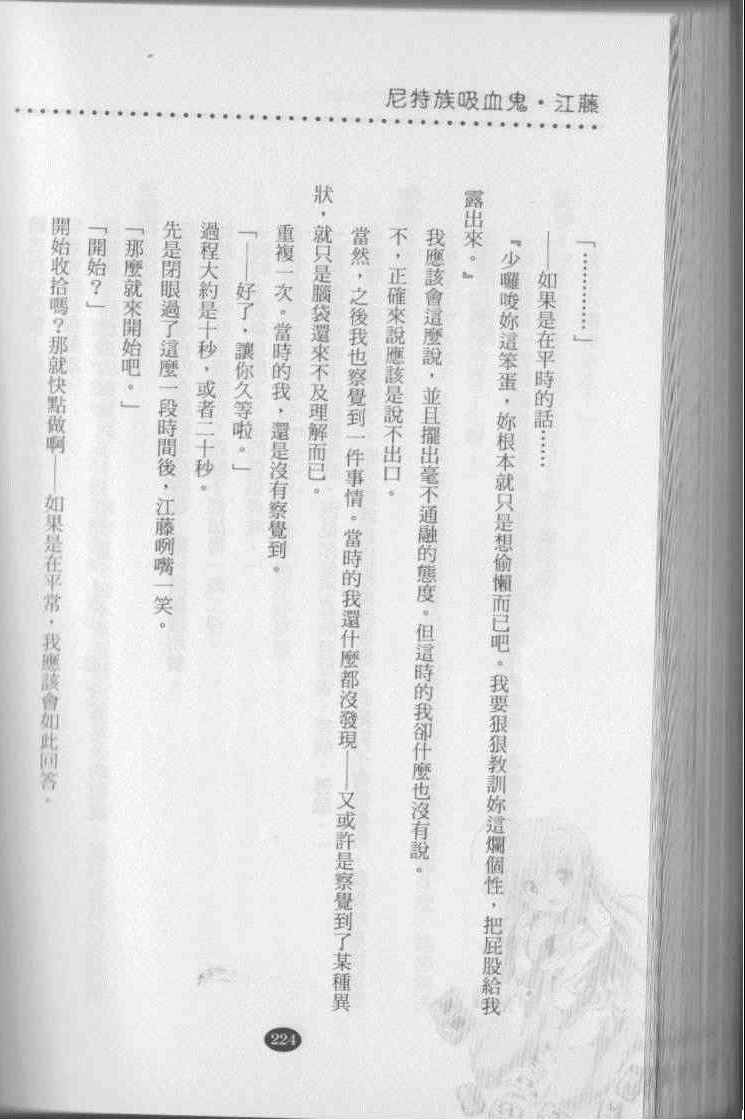 尼特族吸血鬼・江藤
「…………」
——如果是在平時的話……
『少囉唆妳這笨蛋，妳根本就只是想偷懶而已吧。我要狠狠教訓妳這爛個性，把屁股給我
露出來。』
我應該會這麼說，並且擺出毫不通融的態度。但這時的我卻什麼也沒有說。
不，正確來說應該是說不出口。
當然，之後我也察覺到一件事情。當時的我還什麼都沒發現——又或許是察覺到了某種異
狀，就只是腦袋還來不及理解而已。
重複一次。當時的我，還是沒有察覺到。
「——好了，讓你久等啦。」
過程大約是十秒，或者二十秒。
先是閉眼過了這麼一段時間後，江藤咧嘴一笑。
「那麼就來開始吧。」
「開始？」
開始收拾嗎？那就快點做啊——如果是在平常，我應該會如此回答。
224